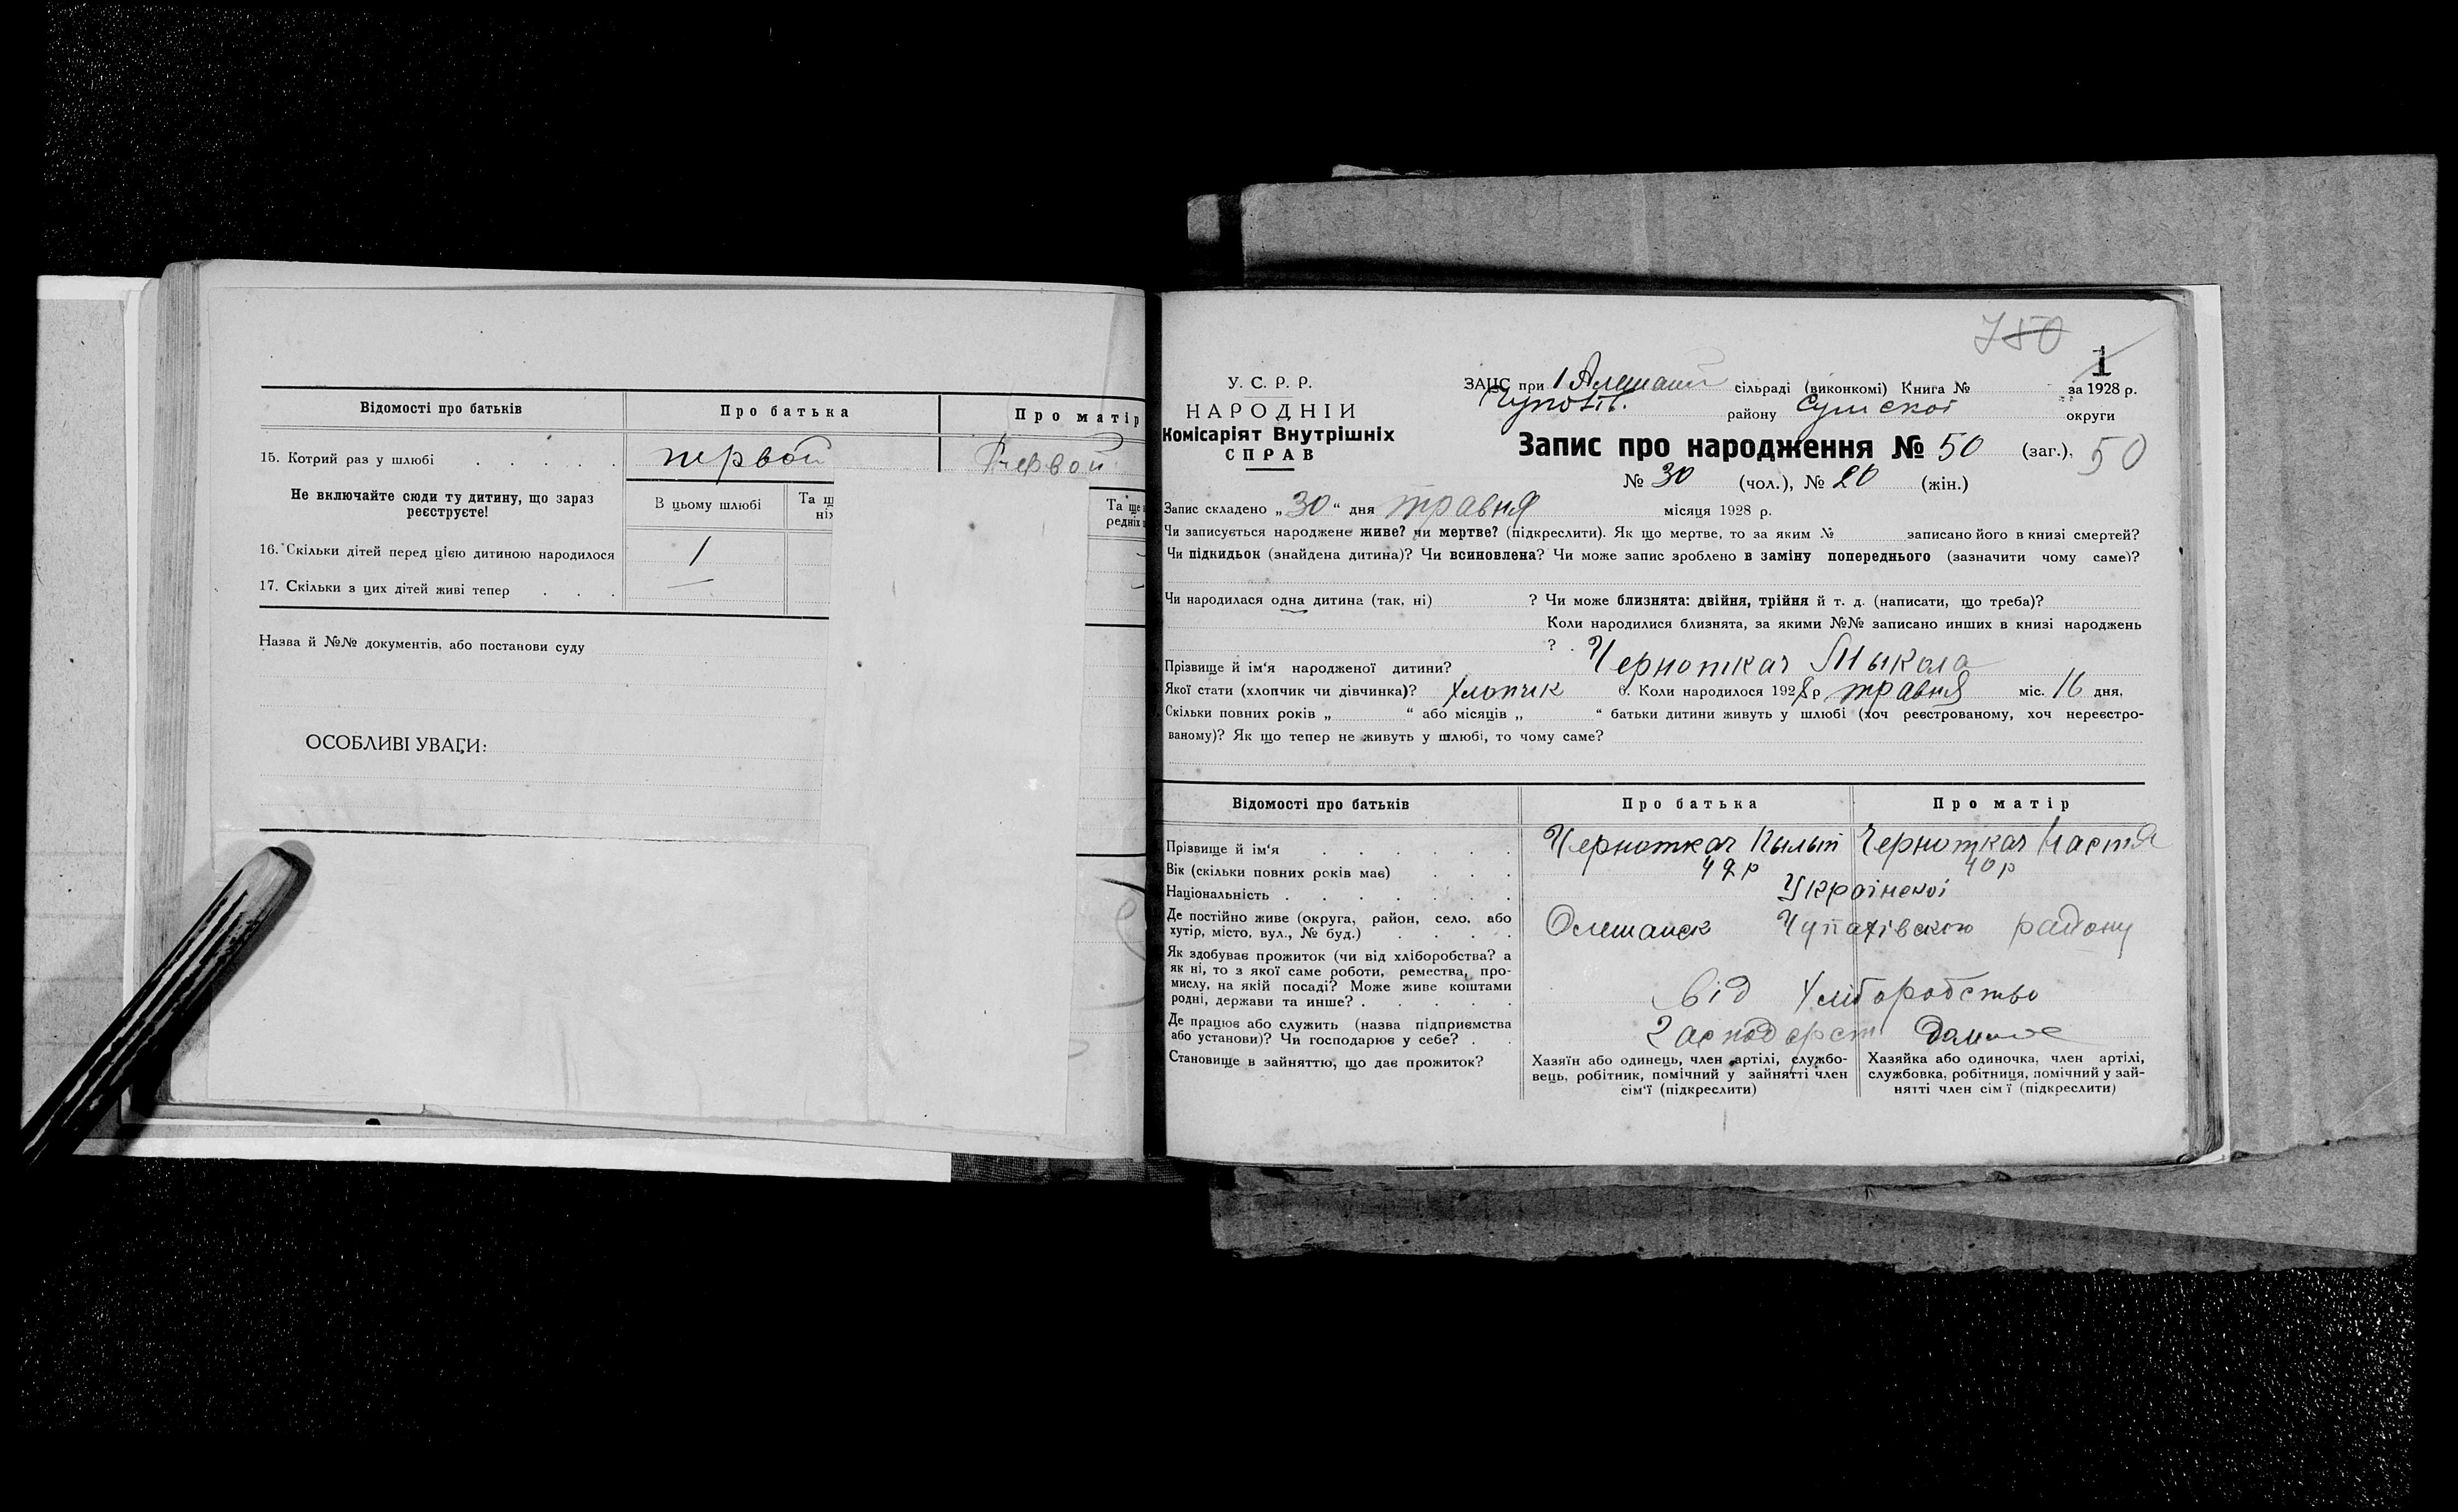 Відомості про батьків
Про батька
Про матір
15. Котрий раз у шлюбі
первой
Первой
Не включайте сюди ту дитину, що зараз
реєструєте!
В цьому шлюбі
16. Скільки дітей перед цією дитиною народилося
1
17. Скільки з цих дітей живі тепер
—
Назва й №№ документів, або постанови суду
ОСОБЛИВІ УВАГИ:
750
1
У. С. Р. Р.
НАРОДНІЙ
Комісаріят Внутрішніх
СПРАВ
ЗАЦС при 1 сільраді (виконкомі) Книга № за 1928 р.
району Сумской округи
Запис про народження № 50 (заг.), 50
№ 30 (чол.), № 20 (жін.)
Запис складено „30“ дня травня місяця 1928 р.
Чи записується народжене живе? чи мертве? (підкреслити). Як що мертве, то за яким № записано його в книзі смертей?
Чи підкидьок (знайдена дитина)? Чи всиновлена? Чи може запис зроблено в заміну попереднього (зазначити чому саме)?
Чи народилася одна дитина (так, ні) ? Чи може близнята: двійня, трійня й т. д. (написати, що треба)?
Коли народилися близнята, за якими №№ записано инших в книзі народжень
?
Прізвище й ім'я народженої дитини? Черноткач Мыкола
Якої стати (хлопчик чи дівчинка)? хлопчик 6. Коли народилося 1928 р травня міс. 16 дня.
Скільки повних років „ “ або місяців „ “ батьки дитини живуть у шлюбі (хоч реєстрованому, хоч нереєстро-
ваному)? Як що тепер не живуть у шлюбі, то чому саме?
Відомості про батьків
Про батька
Про матір
Прізвище й ім'я
Черноткач Пылып
Черноткач Настя
Вік (скільки повних років має)
42р
40р
Національність
Української
Де постійно живе (округа, район, село, або
хутір, місто, вул., № буд.)
району
Як здобуває прожиток (чи від хліборобства? а
як ні, то з якої саме роботи, ремества, про-
мислу, на якій посаді? Може живе коштами
родні, держави та инше?
від хліборобство
Де працює або служить (назва підприємства
або установи)? Чи господарює у себе?
Становище в зайняттю, що дає прожиток?
Хазяїн або одинець, член артілі, службо-
вець, робітник, помічний у зайнятті член
сім'ї (підкреслити)
Хазяйка або одиночка, член артілі,
службовка, робітниця, помічний у зай-
нятті член сім'ї (підкреслити)